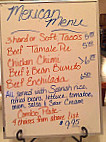 Mexican
Menu
Shard or Soft Tacos 6.95
Beef Tamale Pie 5.95
Chicken Chimi
Beef & Bean Burrito
Beef Enchilada 6.50
All served with Spanish rice,
refried beans, lettuce, tomato,
onion, salsa & Sour Cream
Combo Plate
2 items from above list
$9.95